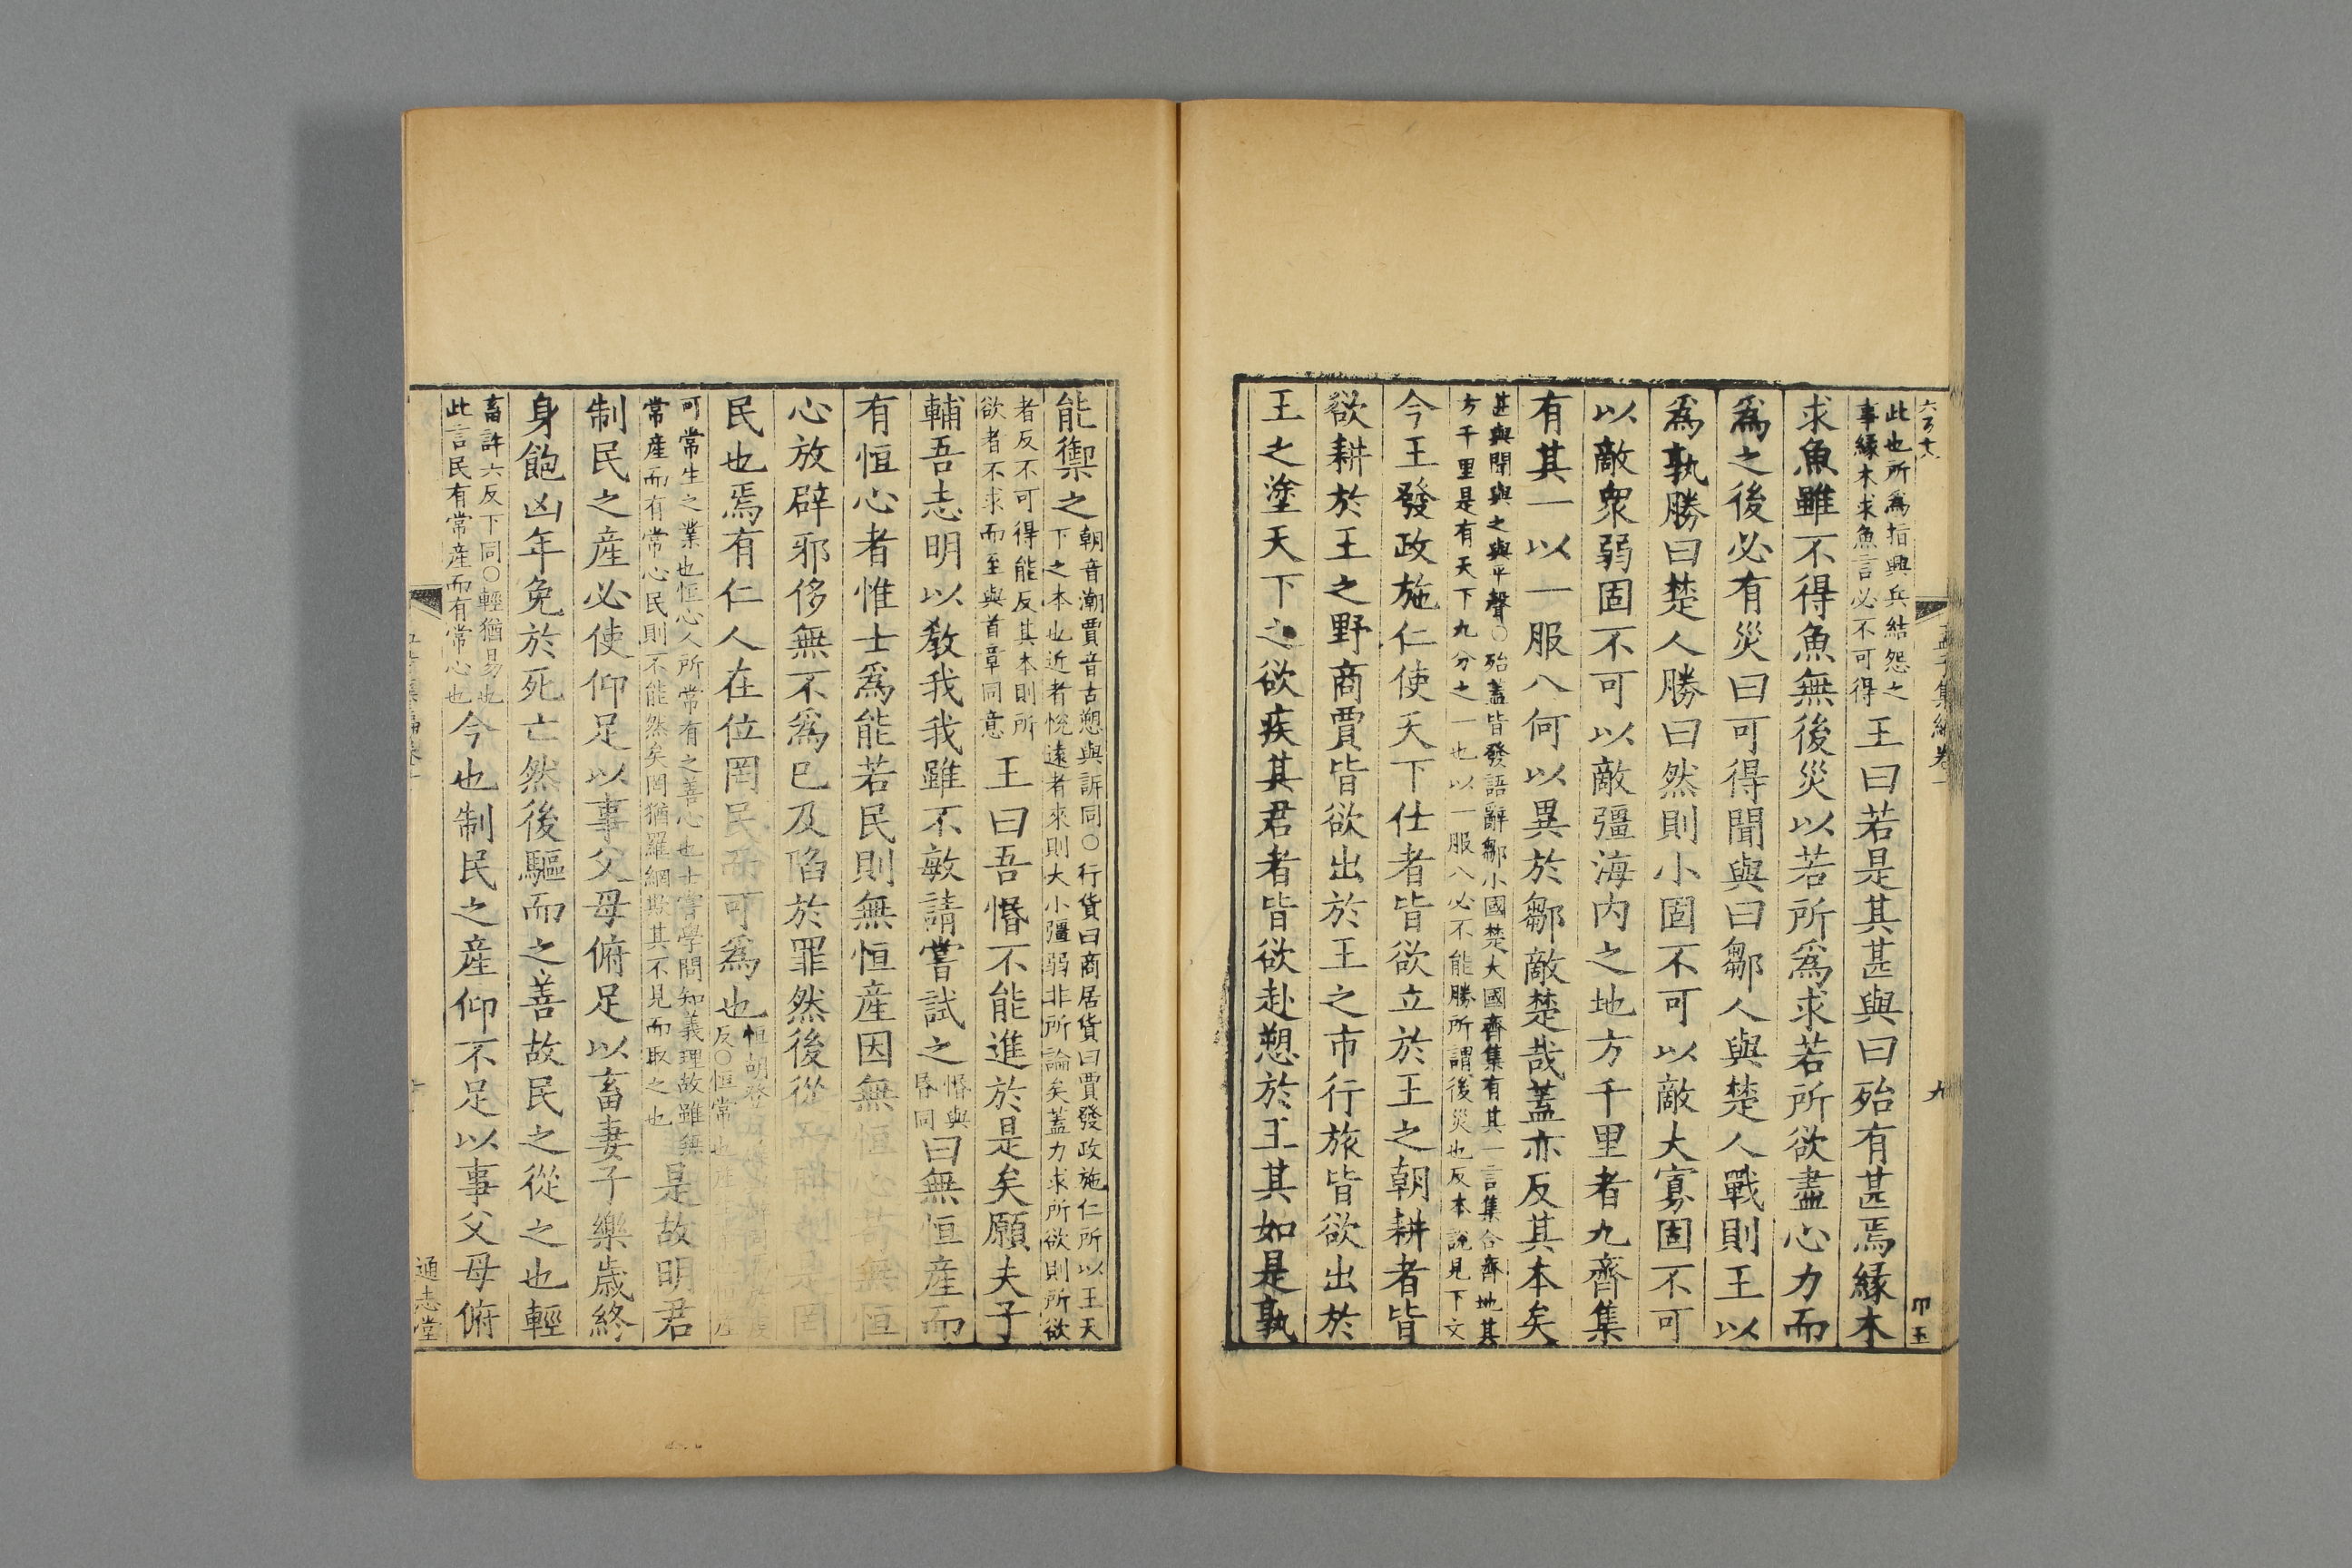 此也所爲指興兵結怨之
事縁木求魚言必不可得
王曰若是其甚與曰殆有甚焉縁木
求魚雖不得魚無後災以若所爲求若所欲盡心力而
爲之後必有災曰可得聞與曰鄒人與楚人戰則王以
爲孰勝曰楚人勝曰然則小固不可以敵大寡固不可
以敵衆弱固不可以敵彊海内之地方千里者九齊集
有其一以一服八何以異於鄒敵楚哉蓋亦反其本矣
甚與聞與之與平聲○殆蓋皆發語辭鄒小國楚大國齊集有其一言集合齊地其
方千里是有天下九分之一也以一服八必不能勝所謂後災也反本說見下文
今王發政施仁使天下仕者皆欲立於王之朝耕者皆
欲耕於王之野商賈皆欲出於王之市行旅皆欲出於
王之塗天下之欲疾其君者皆欲赴愬於王其如是孰
能禦之
朝音潮賈音古愬與訴同○行貨曰商居貨曰賈發政施仁所以王天
下之本也近者悅遠者來則大小彊弱非所論矣蓋力求所欲則所欲
者反不可得能反其本則所
欲者不求而至與首章同意
王曰吾惛不能進於是矣願夫子
輔吾志明以敎我我雖不敏請嘗試之
惛與
昏同
曰無恒産而
有恒心者惟士爲能若民則無恒産因無恒心苟無恒
心放辟邪侈無不爲已及陷於罪然後從而刑之是罔
民也焉有仁人在位罔民而可爲也
恒胡登
反○恒常也産
可常生之業也恒心人所常有之善心也士嘗學問知義理故雖無
常産而有常心民則不能然矣罔猶羅網欺其不見而取之也
是故明君
制民之産必使仰足以事父母俯足以畜妻子樂歳終
身飽凶年免於死亡然後驅而之善故民之從之也輕
畜許六反下同○輕猶易也
此言民有常産而有常心也
今也制民之産仰不足以事父母俯
通志堂